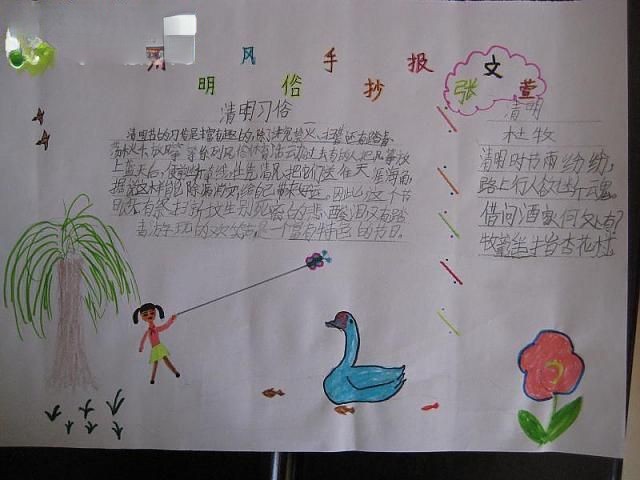 清 风 手 报
明 俗 抄
张 文 萱
清明习俗
清明节的习俗是丰富有趣的,除了讲究禁火、扫墓,还有踏青、
荡秋千、放风筝等一系列风俗体育活动。过去有的人把风筝放
上蓝天后,便剪断牵线,任凭清风把它们送往天涯海角,
据说这样能除病消灾,给自己带来好运。因此,这个节
日既有祭扫新坟生别死离的悲酸泪,又有踏
青游玩的欢笑声,是一个富有特色的节日。
清明
杜牧
清明时节雨纷纷,
路上行人欲断魂。
借问酒家何处有?
牧童遥指杏花村